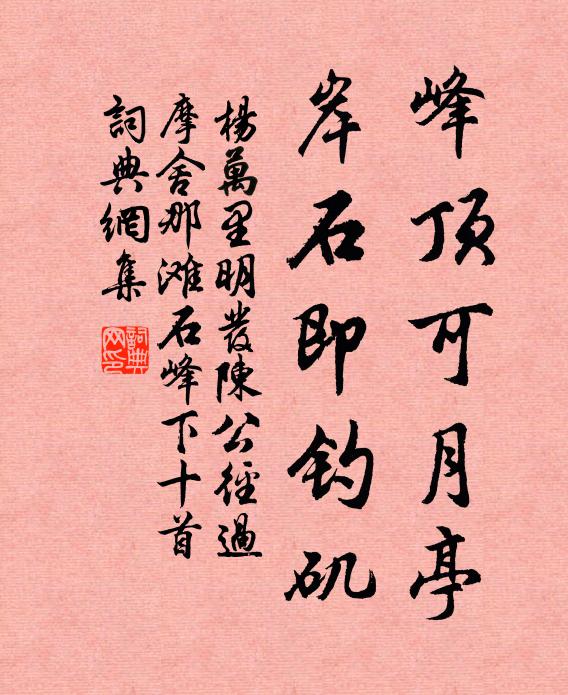 峰顶可月亭
岸石即钓矶
楊萬里明發陳公徑過
摩舍那滩石峰下十首
詞典網集
詞典网印